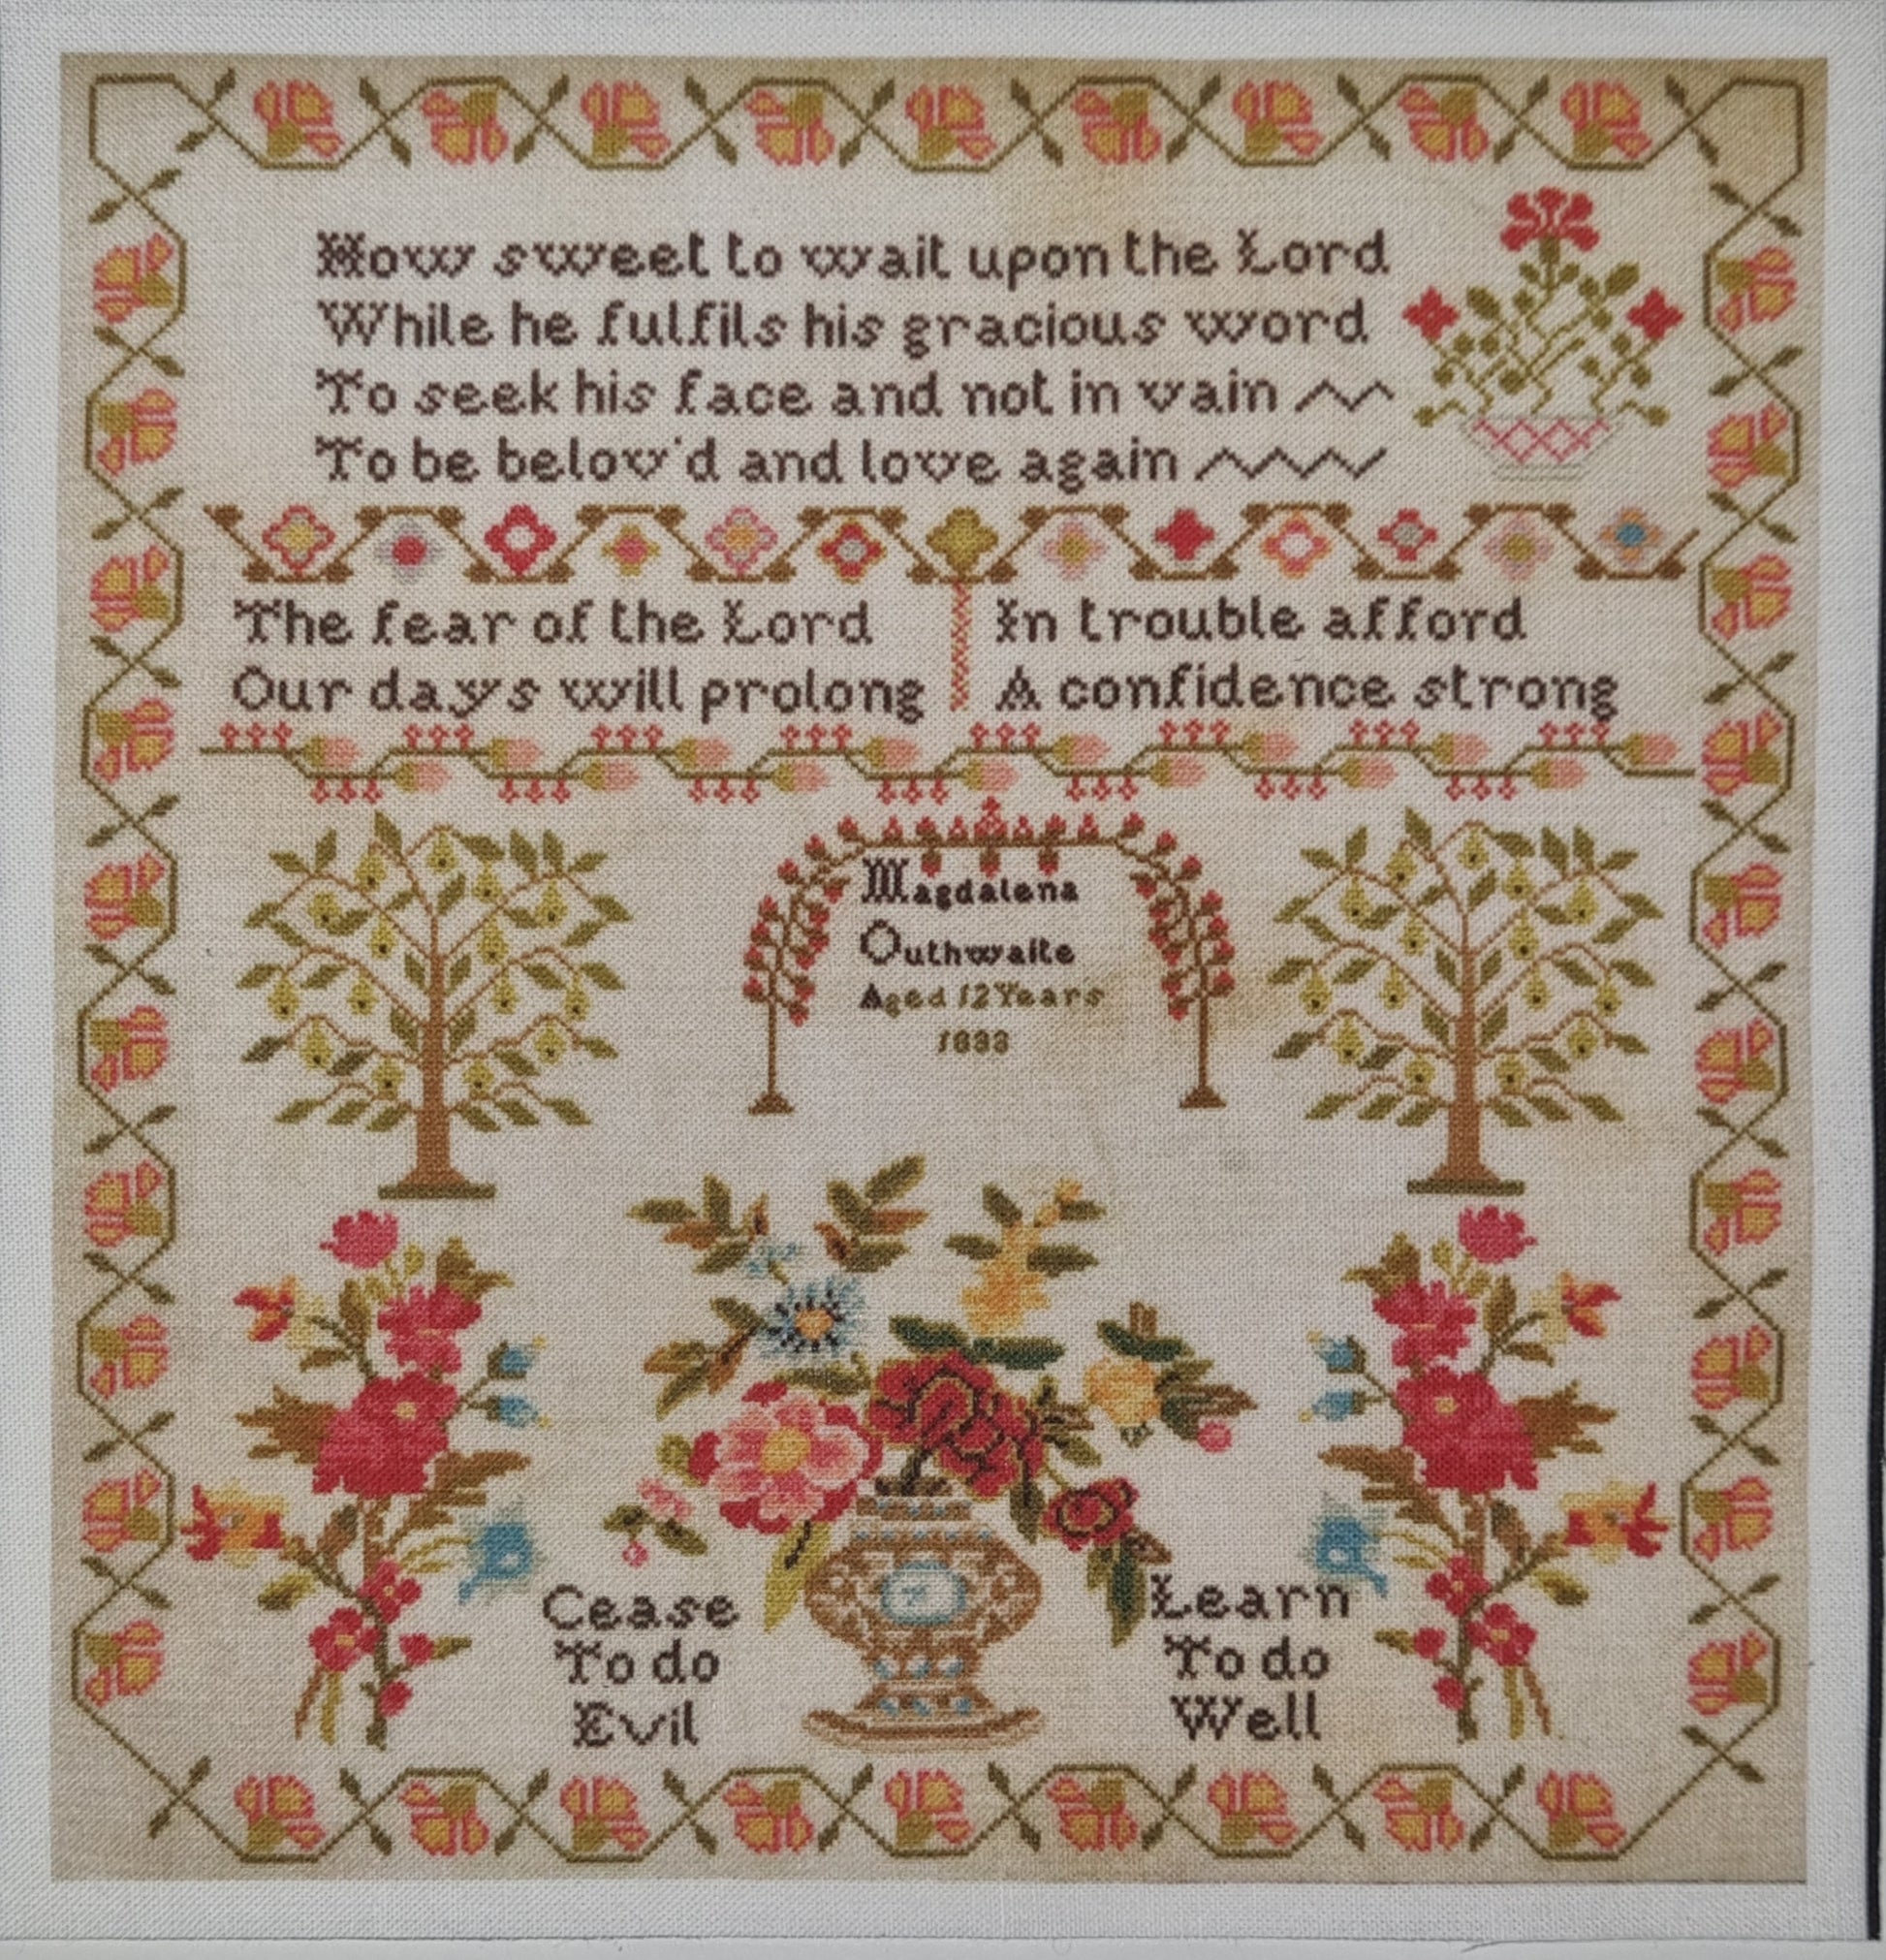 How sweet to wait upon the Lord
While he fulfils his gracious word
To seek his face and not in vain
To be belov'd and love again
The fear of the Lord
Our days will prolong
In trouble afford
A confidence strong
Magdalena
Outhwaite
Aged 12 Years
Cease
To do
Evil
Learn
To do
Well